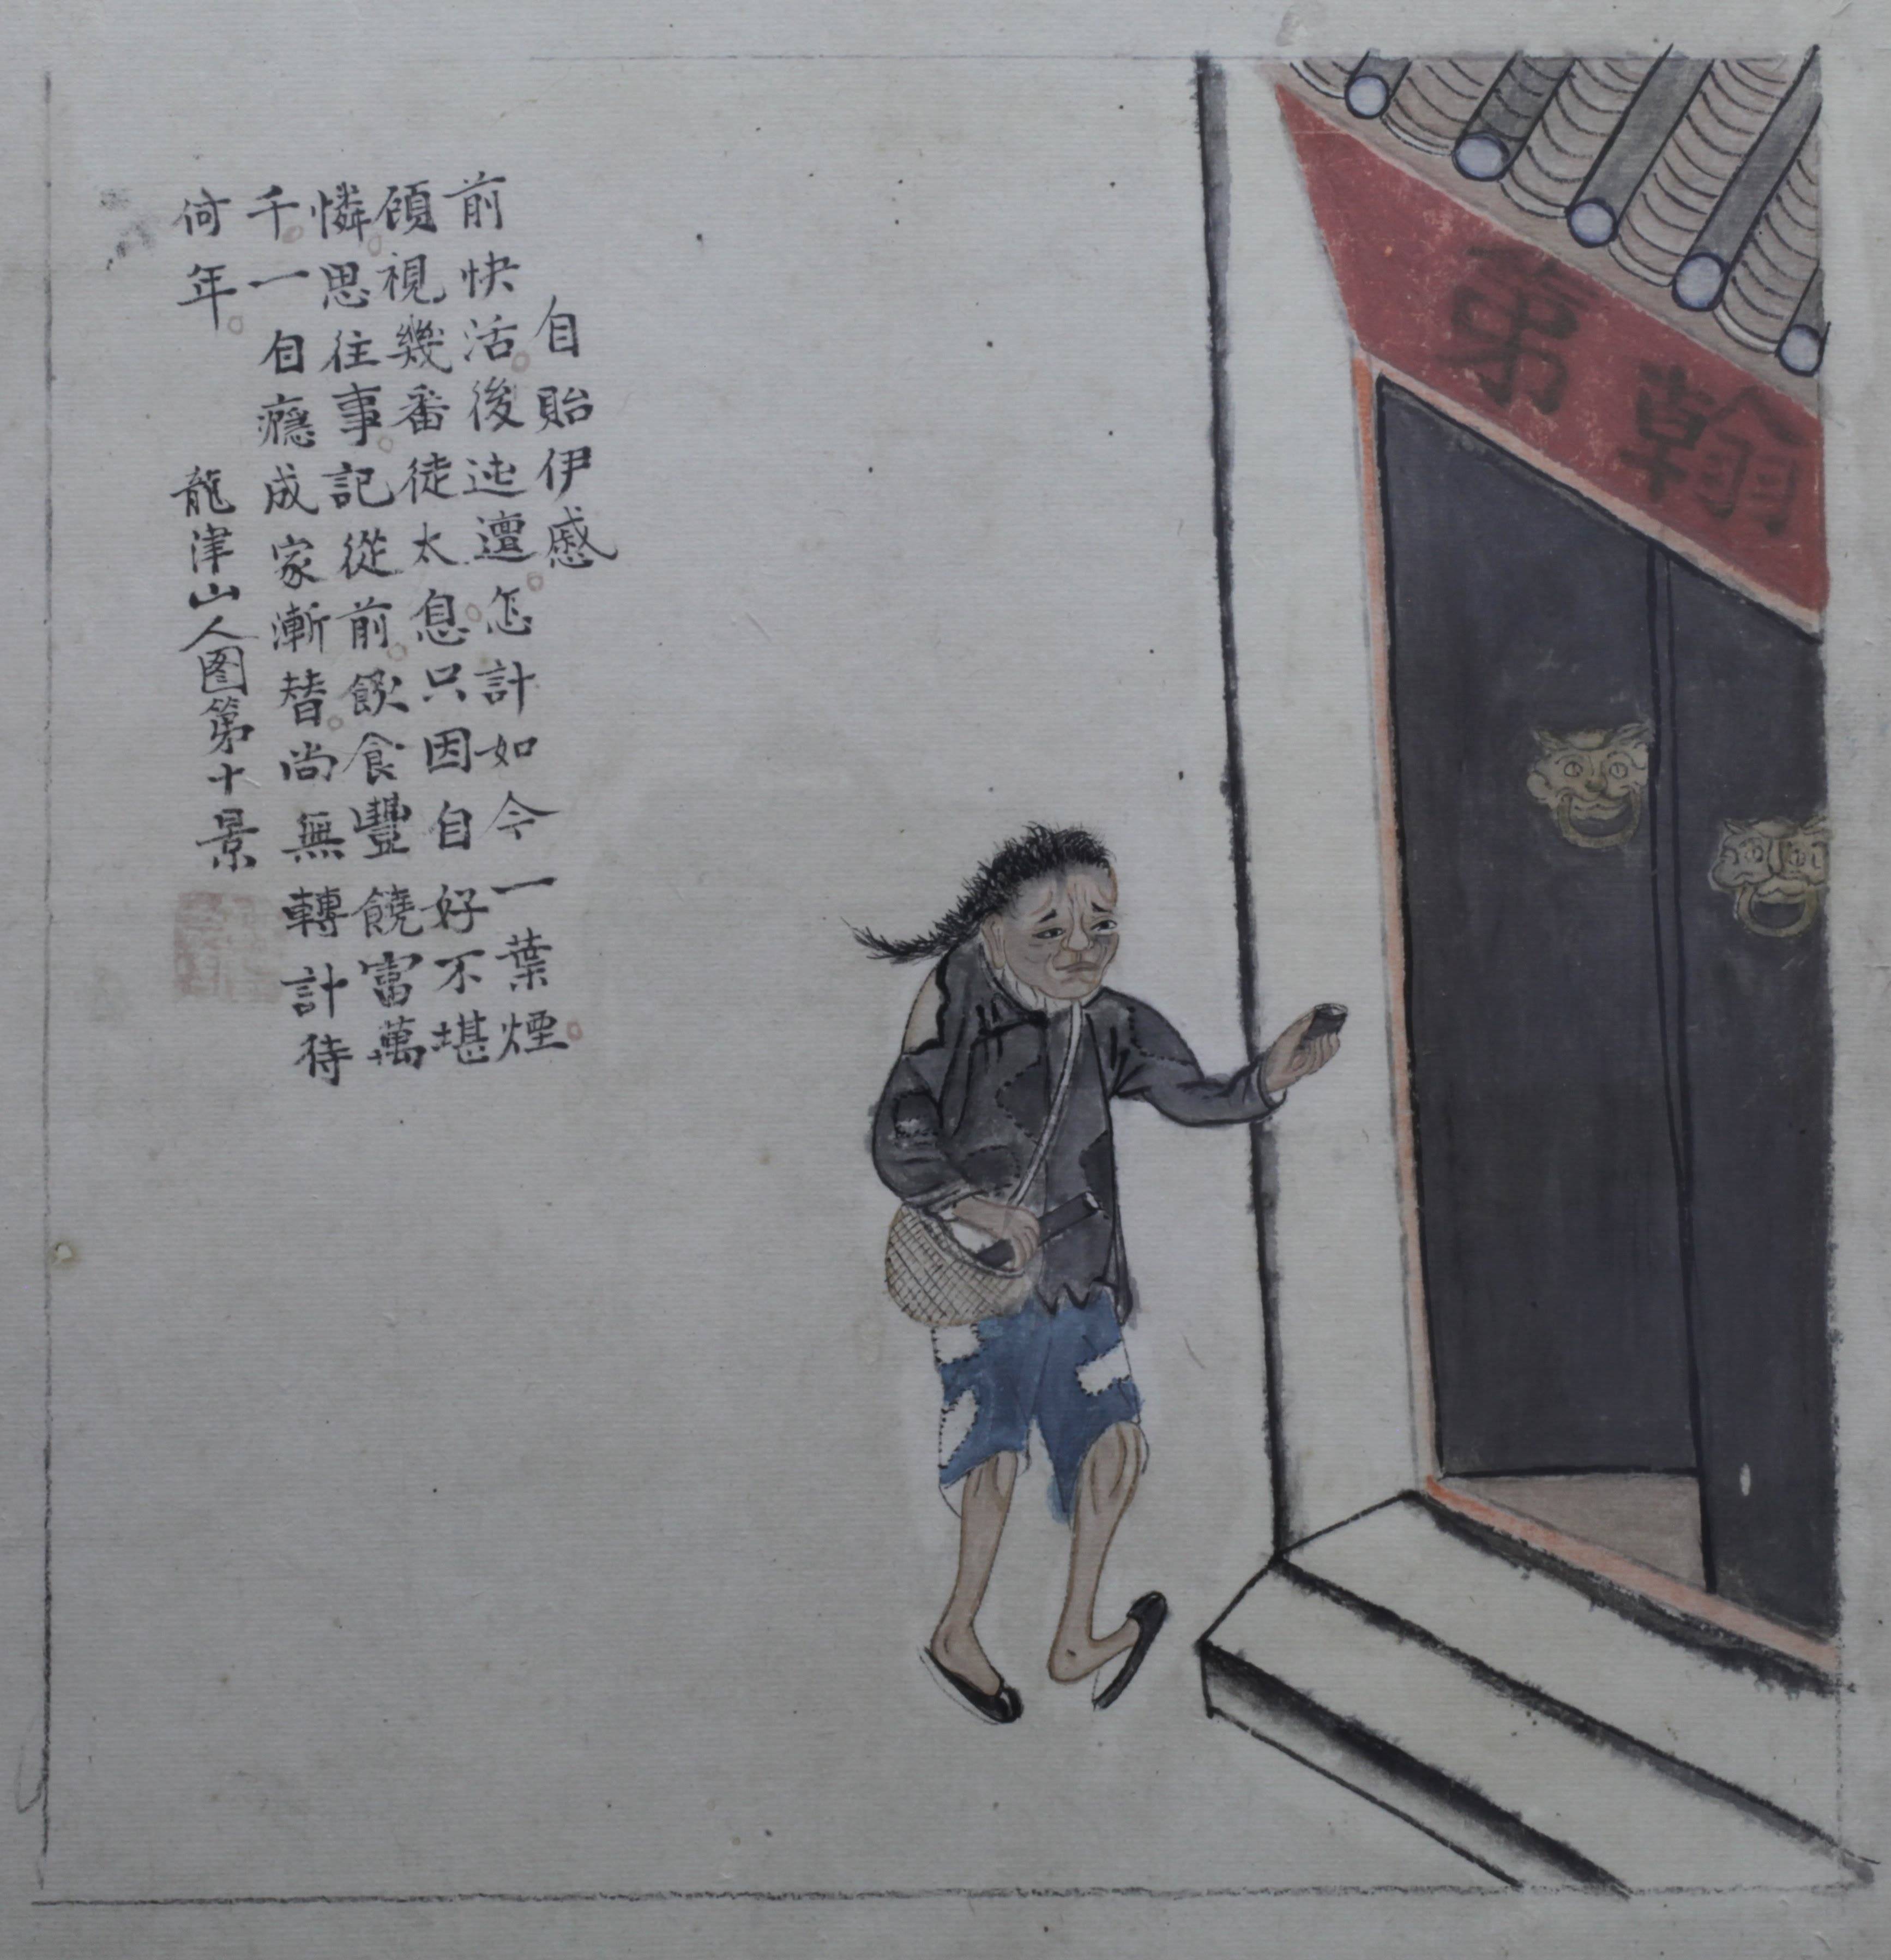 翰第
自貽伊慼
前快活後迍邅怎計如今一葉煙
頋視幾番徒太息只因自好不堪
憐思往事記從前飲食豐饒富萬
千一自癮成家漸替尚無轉計待
何年
龍津山人图第十景